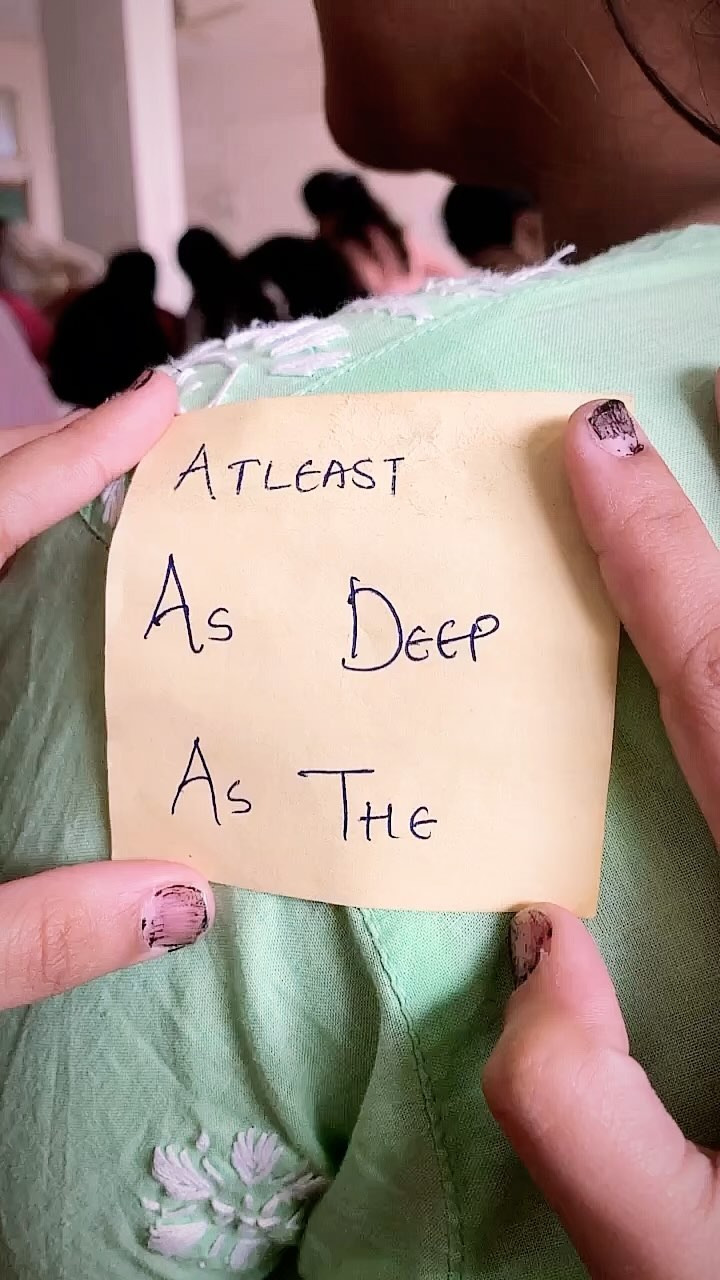 ATLEAST
AS DEEP
AS THE